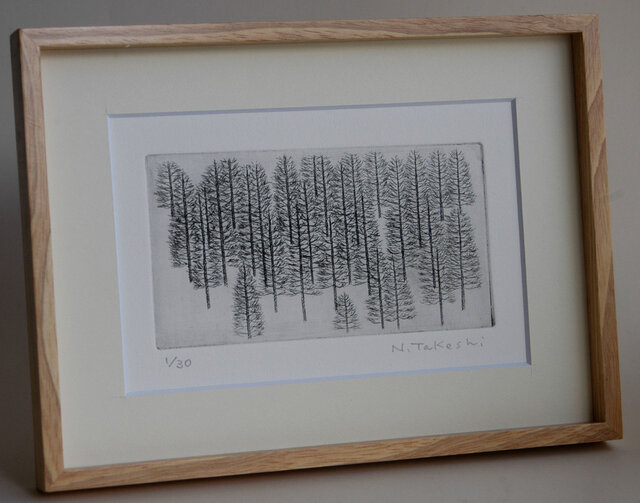 1/30 N.Takeshi